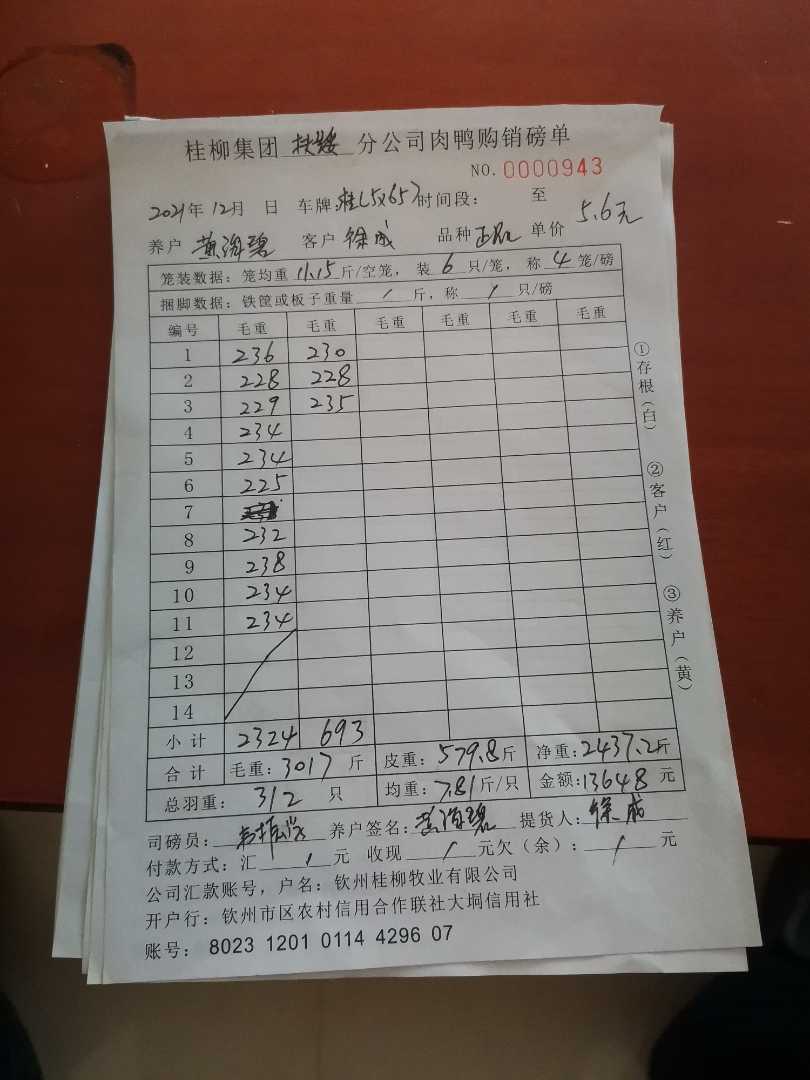 桂柳集团扶绥分公司肉鸭购销磅单
NO.0000943
2021年12月 日 车牌:桂L5X657 时间段: 至
养户 黄海碧 客户 徐成 品种 正品 单价 5.6元
笼装数据：笼均重 11.15 斤/空笼，装 6 只/笼，称 4 笼/磅
捆脚数据：铁筐或板子重量 / 斤，称 / 只/磅
编号 毛重 毛重 毛重 毛重 毛重 毛重
1 236 230
2 228 228
3 229 235
4 234
5 234
6 225
7
8 232
9 238
10 234
11 234
12
13
14
小计 2324 693
合计 毛重:3017 斤 皮重:579.8斤 净重:2437.2斤
总羽重: 312 只 均重:7.81斤/只 金额:13648元
司磅员: 养户签名:黄海碧 提货人:徐成
付款方式：汇 / 元 收现 / 元欠（余）: / 元
公司汇款账号，户名：钦州桂柳牧业有限公司
开户行：钦州市区农村信用合作联社大垌信用社
账号：8023 1201 0114 4296 07
①存根（白） ②客户（红） ③养户（黄）